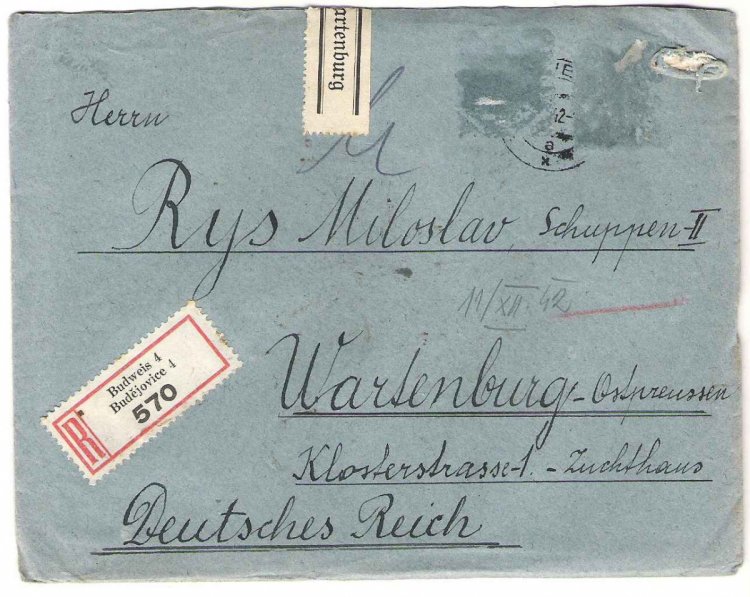 artenburg
Herrn
Rys Miloslav, Schuppen-II
11/XII. 42.
R
Budweis 4
Budějovice 4
570
Wartenburg - Ostpreussen
Klosterstrasse-1. - Zuchthaus
Deutsches Reich